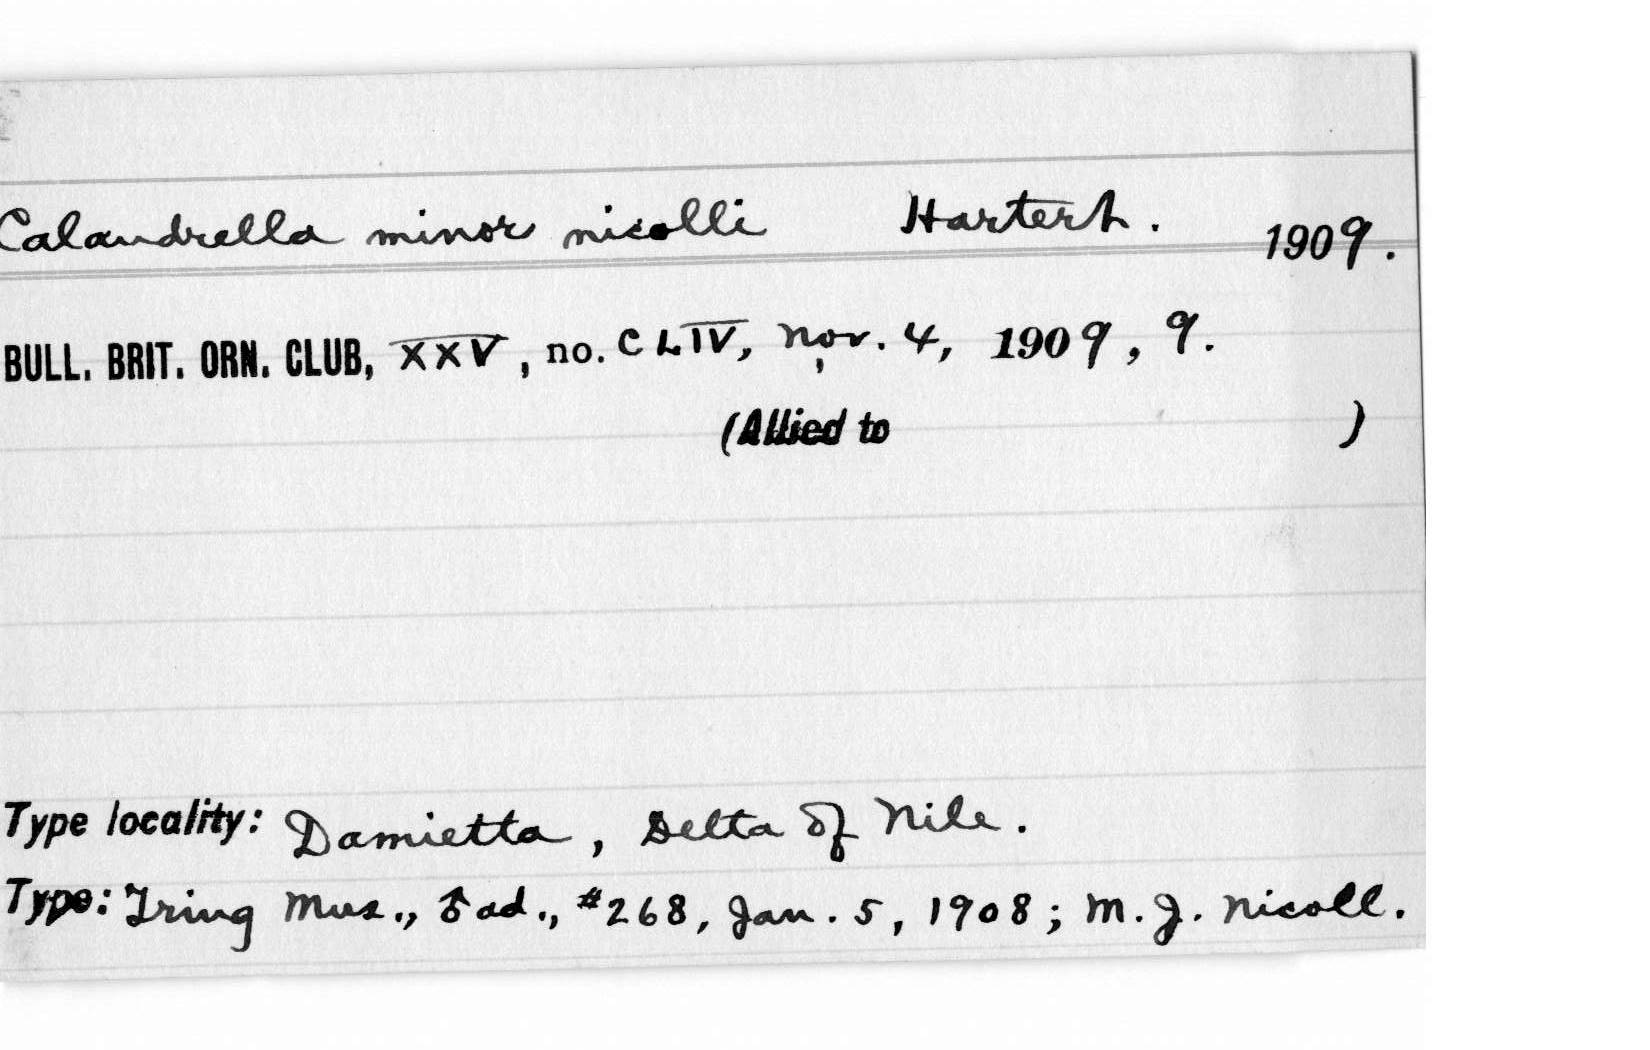 Calandrella minor nicolli Hartert. 1909.
BULL. BRIT. ORN. CLUB, XXV, no. CLIV, Nov. 4, 1909, 9.
(Allied to )
Type locality: Damietta, Delta of Nile.
Type: Tring Mus., ♂ ad., #268, Jan. 5, 1908; M. J. Nicoll.